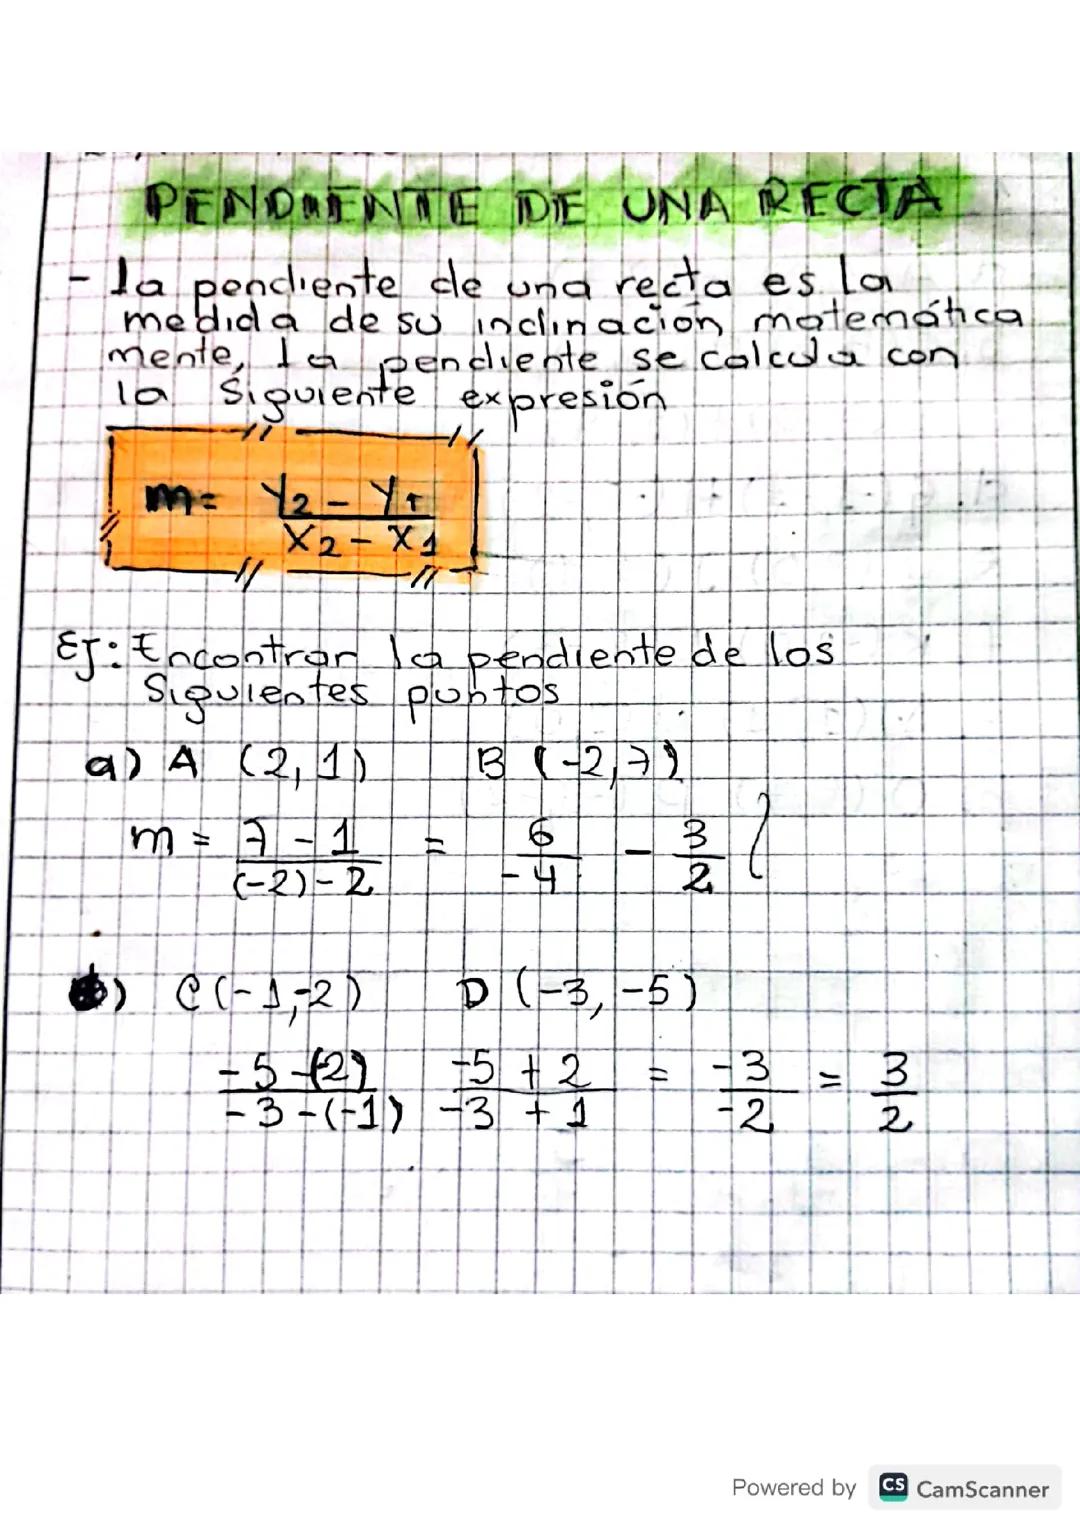 PENDIENTE DE UNA RECTA
- la pendiente de una recta es la
medida de su inclinación matemática
mente, la pendiente se calcula con
la siguiente expresión
m = Y2 - Y1
X2 - X1
EJ: Encontrar la pendiente de los
siguientes puntos
a) A (2, 1) B (-2, 7)
m = 7 - 1 = 6 - 3
(-2) - 2 - 4 2
b) C (-1, -2) D (-3, -5)
-5 -(2) -5 + 2 = -3 = 3
-3 -(-1) -3 + 1 -2 2
Powered by CS CamScanner